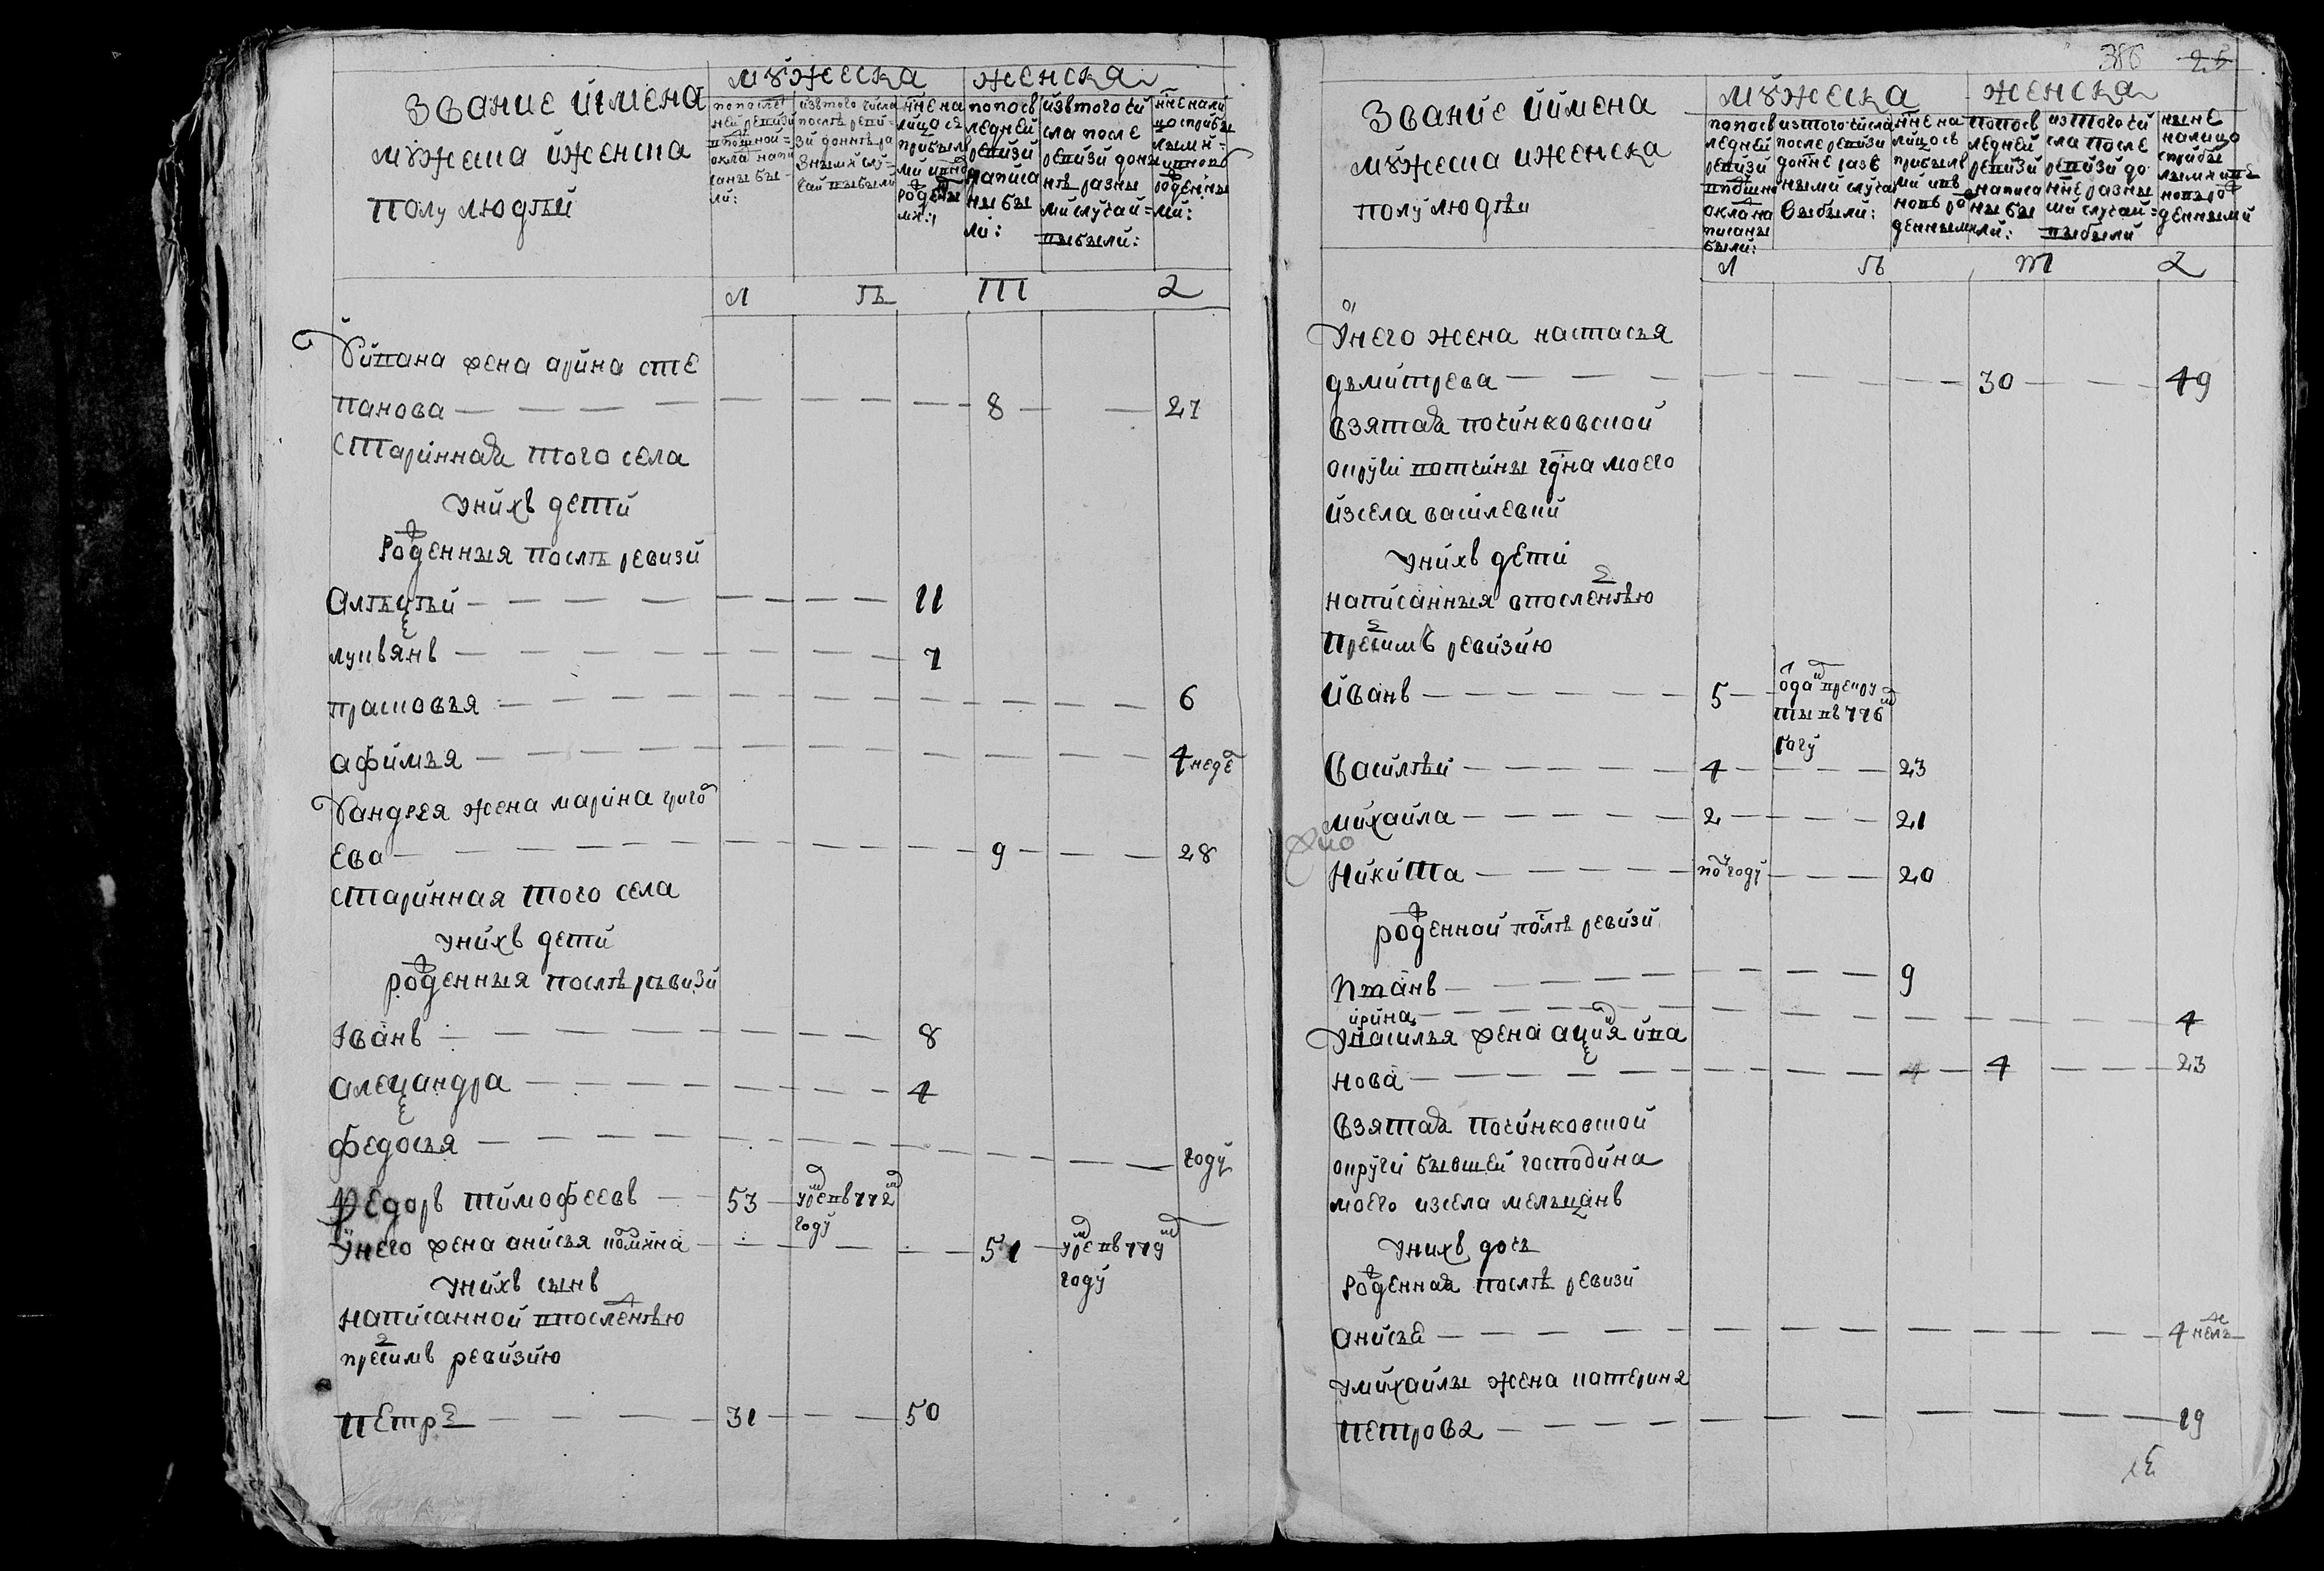 Звание иімена
мужеска иженска
полу людѣй
мужеска
женска
попослед
ней ревизи
вподушной
окладъ напи
саны бы
ли:
изътого числа
послѣ реви
зи донынѣ ра
зными слу
чаи выбыли
ннена
лицо съ
прибылы
ми ивно
рожденны
ми:
попосъ
ледней
ревизи
написа
ны бы
ли:
изътого чи
сла после
ревизи доны
нѣ разны
ми случаи
выбыли:
нненали
цо сприбы
лыми
ивновъ
рожденны
ми:
л лѣ т 2
Уивана жена арина сте
панова 8 27
Стариннаѧ того села
унихъ дети
Рожденныя послѣ ревизи
Алѣксѣй 11
лукъянъ 7
прасковья 6
афимья 4 неде
Уандрея жена марина григо
ева 9 28
Старинная того села
унихъ дети
рожденныя послѣ рѣвизи
Іванъ 8
Александра 4
федосья году
Федоръ тимофеевъ 53 умре въ 772 м
году
Унего жена анисья фомина 51 умре въ 779 м
году
унихъ сынъ
написанной впоследнѣю
предъ симъ ревизию
петръ 31 50
386 25
Звание иимена
мужеска иженска
полу людѣи
мужеска
женска
попосъ
ледней
ревизи
вподушно
оклад на
писаны
были:
изтого числа
после ревизи
донне разъ
ными случаи
выбыли:
нне на
лицось
прибылы
ми ивъ
новъ ро
жденными
попосъ
ледней
ревизи
написа
ны бы
ли:
изтого чи
сла после
ревизи до
нне разны
ми случаи
выбыли
ныне
налицо
сприбы
лыми ив
новъ ро
жденными
л лѣ т 2
Унего жена настасья
дьмитрева 30 49
взятаѧ починковской
округи вотчины гдна моего
изсела василевки
унихъ дети
написанныя впоследнѣю
предъ симъ ревизию
Иванъ 5 одан в рекру
ты въ 776 м
году
Василѣй 4 23
михайла 2 21
Никита полгоду 20
рожденной послѣ ревизи
Иванъ 9
ирина 4
Увасилья жена аксинья ива
нова 4 23
Взятаѧ починковской
округи бывшей господина
моего изсела мельцанъ
унихъ дочь
Рожденнаѧ послѣ ревизи
анисья 4 недль
умихайлы жена катерина
петрова 19